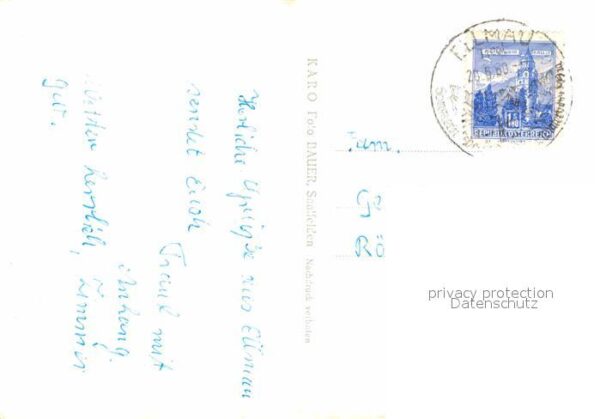 Herzliche Grüße aus Ellmau
sendet Euch
Traudl mit
Anhang
Wetter herrlich, Zimmer
gut.
KARO Foto BAUER, Saalfelden Nachdruck verboten
Fam.
G
RÖ
ELLMAU
REPUBLIK ÖSTERREICH
privacy protection
Datenschutz